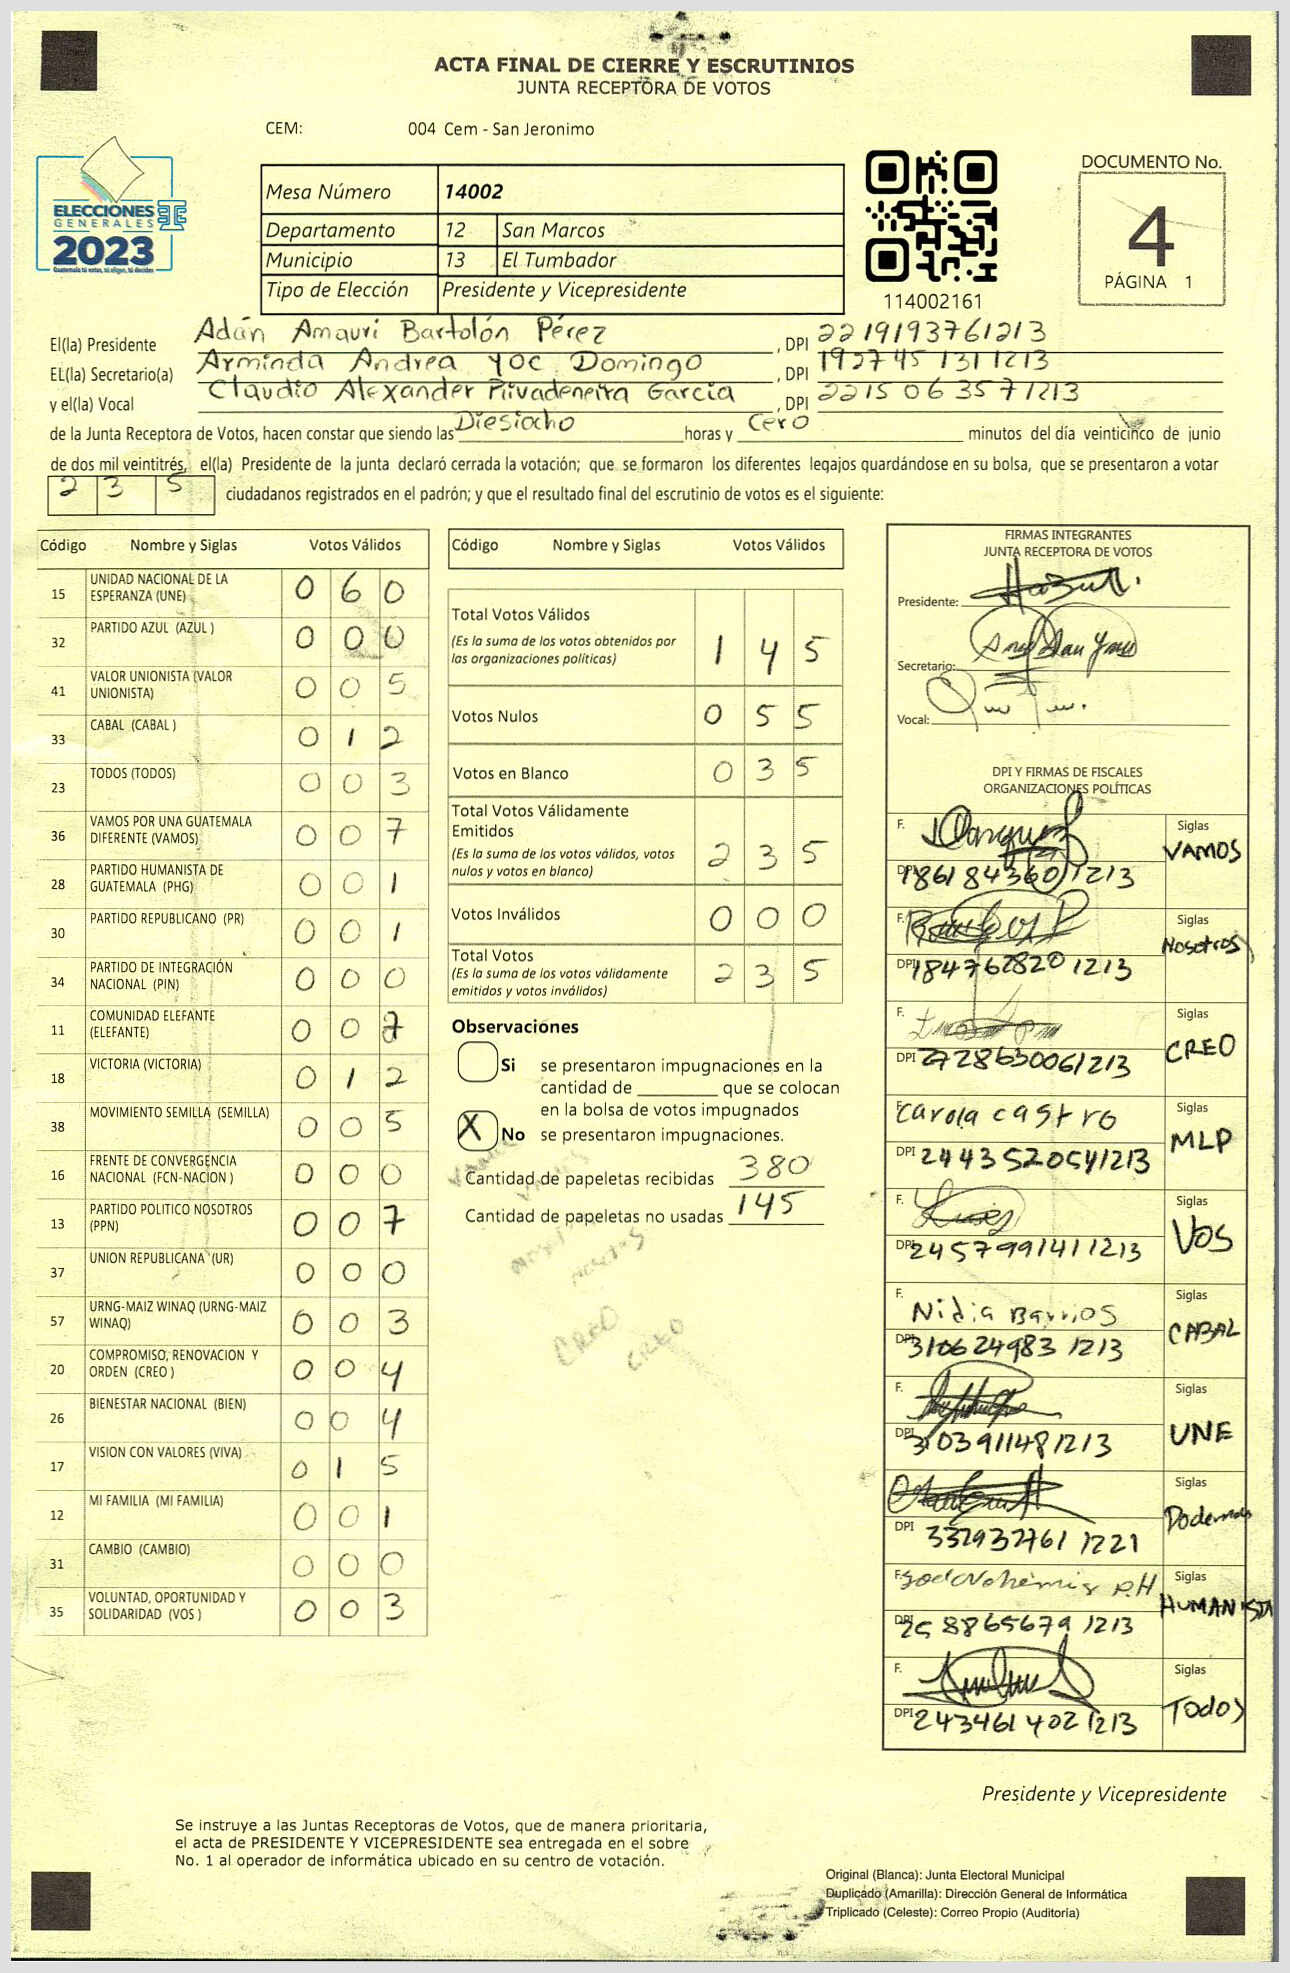 ACTA FINAL DE CIERRE Y ESCRUTINIOS
JUNTA RECEPTORA DE VOTOS
CEM: 004 Cem - San Jeronimo
ELECCIONES
GENERALES
2023
Guatemala tú votas, tú eliges, tú decides
Mesa Número 14002
Departamento 12 San Marcos
Municipio 13 El Tumbador
Tipo de Elección Presidente y Vicepresidente
114002161
DOCUMENTO No.
4
PÁGINA 1
El(la) Presidente Adán Amauri Bartolón Pérez, DPI 2219193761213
EL(la) Secretario(a) Arminda Andrea Yoc Domingo, DPI 1927451311213
y el(la) Vocal Claudio Alexander Rivadeneira García, DPI 2215063571213
de la Junta Receptora de Votos, hacen constar que siendo las Diesiocho horas y Cero minutos del día veinticinco de junio
de dos mil veintitrés, el(la) Presidente de la junta declaró cerrada la votación; que se formaron los diferentes legajos guardándose en su bolsa, que se presentaron a votar
235 ciudadanos registrados en el padrón; y que el resultado final del escrutinio de votos es el siguiente:
Código Nombre y Siglas Votos Válidos
15 UNIDAD NACIONAL DE LA ESPERANZA (UNE) 060
32 PARTIDO AZUL (AZUL ) 000
41 VALOR UNIONISTA (VALOR UNIONISTA) 005
33 CABAL (CABAL ) 012
23 TODOS (TODOS) 003
36 VAMOS POR UNA GUATEMALA DIFERENTE (VAMOS) 007
28 PARTIDO HUMANISTA DE GUATEMALA (PHG) 001
30 PARTIDO REPUBLICANO (PR) 001
34 PARTIDO DE INTEGRACIÓN NACIONAL (PIN) 000
11 COMUNIDAD ELEFANTE (ELEFANTE) 007
18 VICTORIA (VICTORIA) 012
38 MOVIMIENTO SEMILLA (SEMILLA) 005
16 FRENTE DE CONVERGENCIA NACIONAL (FCN-NACION ) 000
13 PARTIDO POLITICO NOSOTROS (PPN) 007
37 UNION REPUBLICANA (UR) 000
57 URNG-MAIZ WINAQ (URNG-MAIZ WINAQ) 003
20 COMPROMISO, RENOVACION Y ORDEN (CREO ) 004
26 BIENESTAR NACIONAL (BIEN) 004
17 VISION CON VALORES (VIVA) 015
12 MI FAMILIA (MI FAMILIA) 001
31 CAMBIO (CAMBIO) 000
35 VOLUNTAD, OPORTUNIDAD Y SOLIDARIDAD (VOS ) 003
Código Nombre y Siglas Votos Válidos
Total Votos Válidos
(Es la suma de los votos obtenidos por
las organizaciones políticas) 145
Votos Nulos 055
Votos en Blanco 035
Total Votos Válidamente
Emitidos
(Es la suma de los votos válidos, votos
nulos y votos en blanco) 235
Votos Inválidos 000
Total Votos
(Es la suma de los votos válidamente
emitidos y votos inválidos) 235
Observaciones
Si se presentaron impugnaciones en la
cantidad de ________ que se colocan
en la bolsa de votos impugnados
X No se presentaron impugnaciones.
Cantidad de papeletas recibidas 380
Cantidad de papeletas no usadas 145
CREO CREO
FIRMAS INTEGRANTES
JUNTA RECEPTORA DE VOTOS
Presidente:
Secretario:
Vocal:
DPI Y FIRMAS DE FISCALES
ORGANIZACIONES POLÍTICAS
F. Siglas VAMOS
DPI 1861843601213
F. Siglas Nosotros
DPI 1847628201213
F. Siglas CREO
DPI 2728630061213
F. Carola Castro Siglas MLP
DPI 2443520541213
F. Siglas VOS
DPI 2457991411213
F. Nidia Barrios Siglas CABAL
DPI 3106249831213
F. Siglas UNE
DPI 3103911481213
F. Siglas Podemos
DPI 3329327611221
F. Siglas HUMANISTA
DPI 
F. Siglas Todos
DPI 2434614021213
Presidente y Vicepresidente
Se instruye a las Juntas Receptoras de Votos, que de manera prioritaria,
el acta de PRESIDENTE Y VICEPRESIDENTE sea entregada en el sobre
No. 1 al operador de informática ubicado en su centro de votación.
Original (Blanca): Junta Electoral Municipal
Duplicado (Amarilla): Dirección General de Informática
Triplicado (Celeste): Correo Propio (Auditoría)